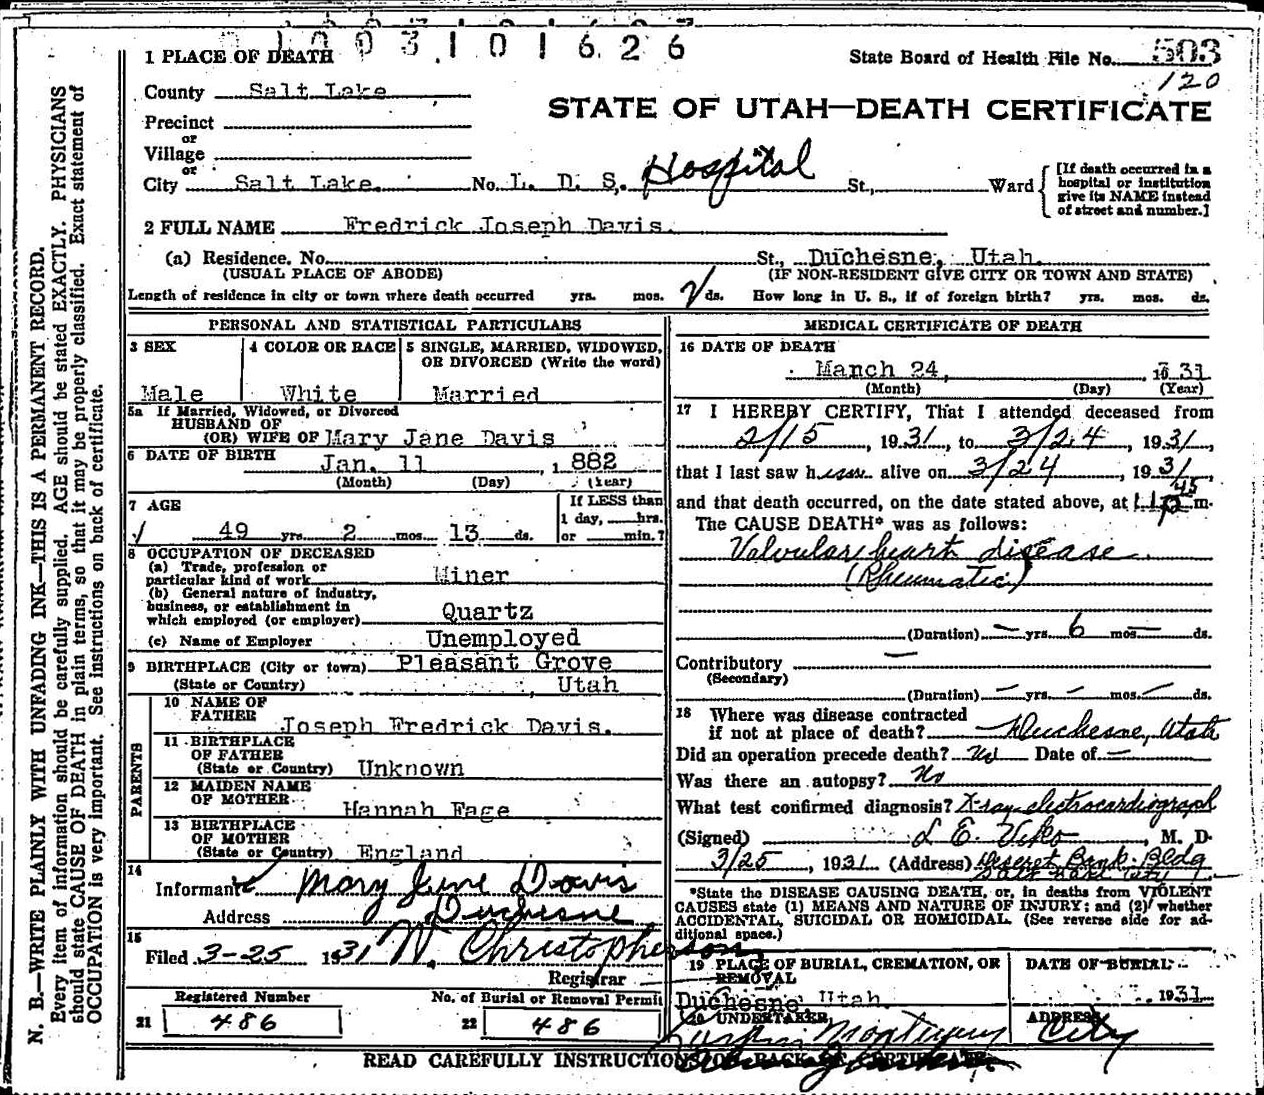 1003101626
1 PLACE OF DEATH
State Board of Health File No. 503
120
County Salt Lake
STATE OF UTAH—DEATH CERTIFICATE
Precinct
or
Village
or
City Salt Lake. No. L. D. S. Hospital St., Ward
[If death occurred in a
hospital or institution
give its NAME instead
of street and number.]
2 FULL NAME Fredrick Joseph Davis.
(a) Residence. No. St., Duchesne, Utah.
(USUAL PLACE OF ABODE) (IF NON-RESIDENT GIVE CITY OR TOWN AND STATE)
Length of residence in city or town where death occurred yrs. mos. ds. How long in U. S., if of foreign birth? yrs. mos. ds.
PERSONAL AND STATISTICAL PARTICULARS
3 SEX
Male
4 COLOR OR RACE
White
5 SINGLE, MARRIED, WIDOWED,
OR DIVORCED (Write the word)
Married
5a If Married, Widowed, or Divorced
HUSBAND OF
(OR) WIFE OF Mary Jane Davis
6 DATE OF BIRTH
Jan. 11, 1882
(Month) (Day) (Year)
7 AGE
49 yrs. 2 mos. 13 ds.
If LESS than
1 day, hrs.
or min.?
8 OCCUPATION OF DECEASED
(a) Trade, profession or
particular kind of work Miner
(b) General nature of industry,
business, or establishment in
which employed (or employer) Quartz
(c) Name of Employer Unemployed
9 BIRTHPLACE (City or town) Pleasant Grove
(State or Country) , Utah
PARENTS
10 NAME OF
FATHER Joseph Fredrick Davis.
11 BIRTHPLACE
OF FATHER
(State or Country) Unknown
12 MAIDEN NAME
OF MOTHER Hannah Fage
13 BIRTHPLACE
OF MOTHER
(State or Country) England
14
Informant Mary Jane Davis
Address Duchesne
15
Filed 3-25 1931 N. Christopherson
Registrar
Registered Number
21 486
No. of Burial or Removal Permit
22 486
MEDICAL CERTIFICATE OF DEATH
16 DATE OF DEATH
March 24, 1931
(Month) (Day) (Year)
17 I HEREBY CERTIFY, That I attended deceased from
2/15, 1931, to 3/24, 1931,
that I last saw him alive on 3/24, 1931
and that death occurred, on the date stated above, at 1 45 p m.
The CAUSE DEATH* was as follows:
Valvular heart disease
(Rheumatic)
(Duration) — yrs. 6 mos. — ds.
Contributory —
(Secondary)
(Duration) — yrs. — mos. — ds.
18 Where was disease contracted
if not at place of death? Duchesne, Utah
Did an operation precede death? No Date of —
Was there an autopsy? No
What test confirmed diagnosis? X-ray electrocardiograph
(Signed) L E. Viko, M. D.
3/25, 1931 (Address) Deseret Bank Bldg
Salt Lake City
*State the DISEASE CAUSING DEATH, or, in deaths from VIOLENT
CAUSES state (1) MEANS AND NATURE OF INJURY; and (2) whether
ACCIDENTAL, SUICIDAL OR HOMICIDAL. (See reverse side for ad-
ditional space.)
19 PLACE OF BURIAL, CREMATION, OR
REMOVAL
Duchesne, Utah.
DATE OF BURIAL
1931
20 UNDERTAKER
ADDRESS
City
READ CAREFULLY INSTRUCTIONS ON BACK OF CERTIFICATE
N. B.—WRITE PLAINLY WITH UNFADING INK—THIS IS A PERMANENT RECORD.
Every item of information should be carefully supplied. AGE should be stated EXACTLY. PHYSICIANS
should state CAUSE OF DEATH in plain terms, so that it may be properly classified. Exact statement of
OCCUPATION is very important. See instructions on back of certificate.